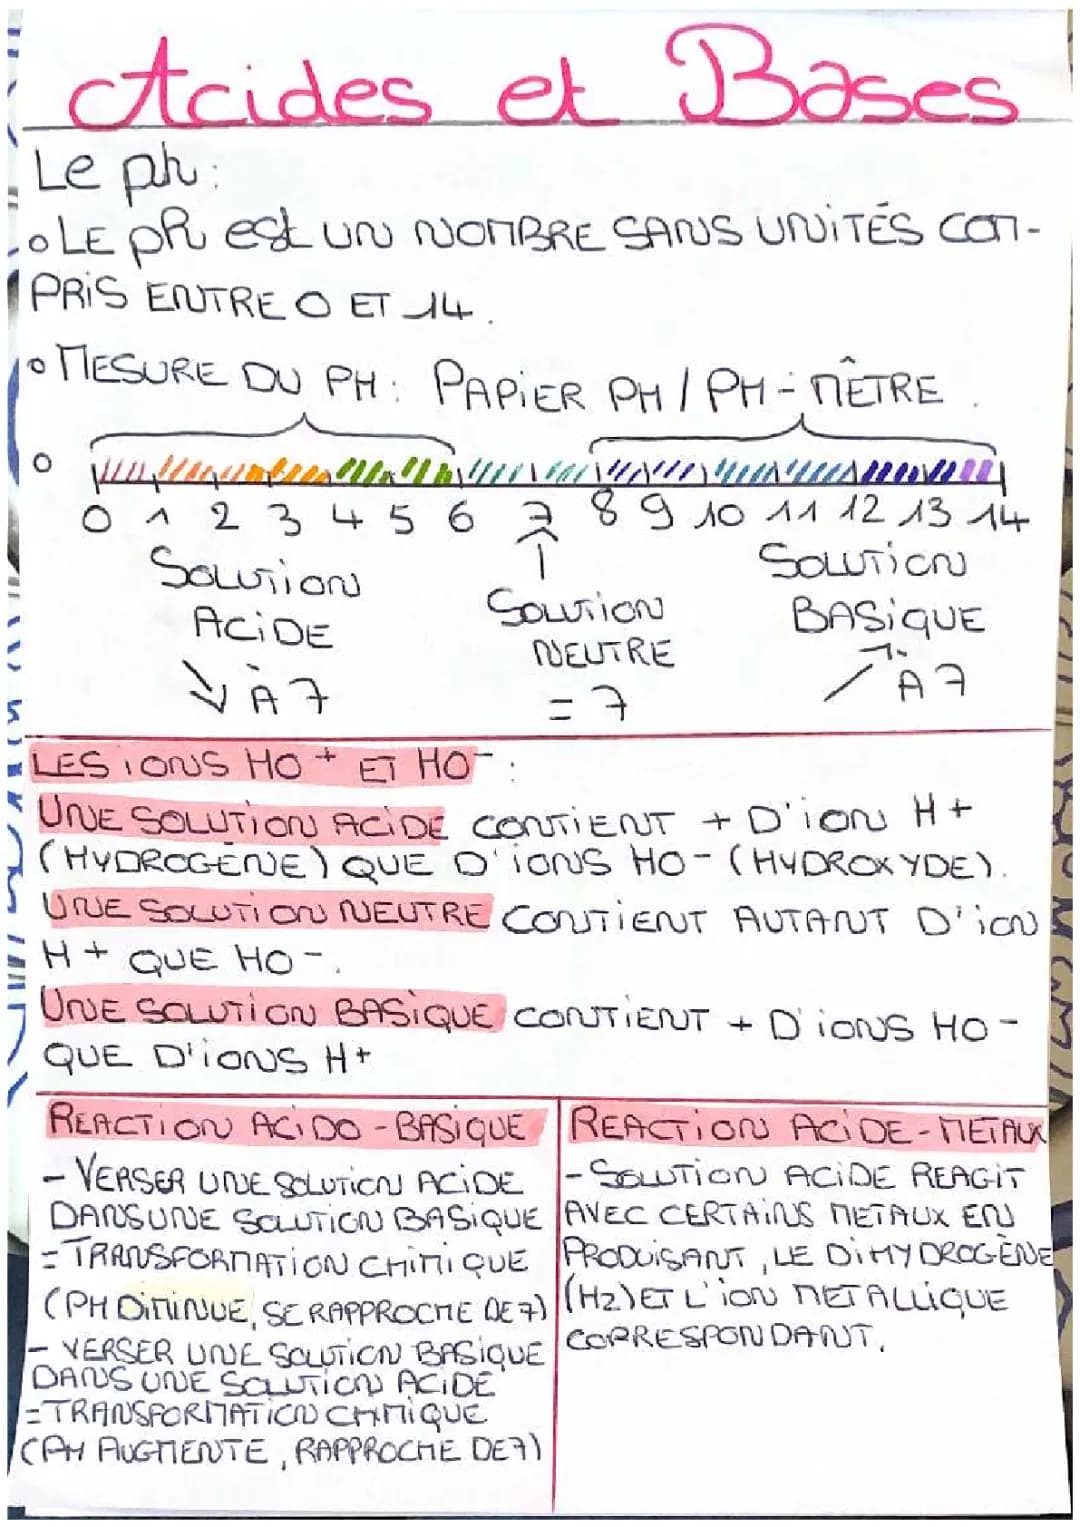 Acides et Bases
Le ph:
LE ph est UN NOMBRE SANS UNITÉS COM-
PRIS ENTRE 0 ET 14.
MESURE DU PH: PAPIER PH / PH-MÊTRE.
0 1 2 3 4 5 6 7 8 9 10 11 12 13 14
SOLUTION ACIDE ↘ À 7
SOLUTION NEUTRE = 7
SOLUTION BASIQUE ↗ À 7
LES IONS HO+ ET HO-:
UNE SOLUTION ACIDE CONTIENT + D'ION H+
(HYDROGÈNE) QUE D'IONS HO- (HYDROXYDE).
UNE SOLUTION NEUTRE CONTIENT AUTANT D'ION
H+ QUE HO-.
UNE SOLUTION BASIQUE CONTIENT + D'IONS HO-
QUE D'IONS H+
REACTION ACIDO-BASIQUE
- VERSER UNE SOLUTION ACIDE
DANS UNE SOLUTION BASIQUE
= TRANSFORMATION CHIMIQUE
(PH DIMINUE, SE RAPPROCHE DE 7)
- VERSER UNE SOLUTION BASIQUE
DANS UNE SOLUTION ACIDE
= TRANSFORMATION CHIMIQUE
(PH AUGMENTE, RAPPROCHE DE 7)
REACTION ACIDE-METAUX
- SOLUTION ACIDE REAGIT
AVEC CERTAINS METAUX EN
PRODUISANT, LE DIHYDROGÈNE
(H2) ET L'ION METALLIQUE
CORRESPONDANT.